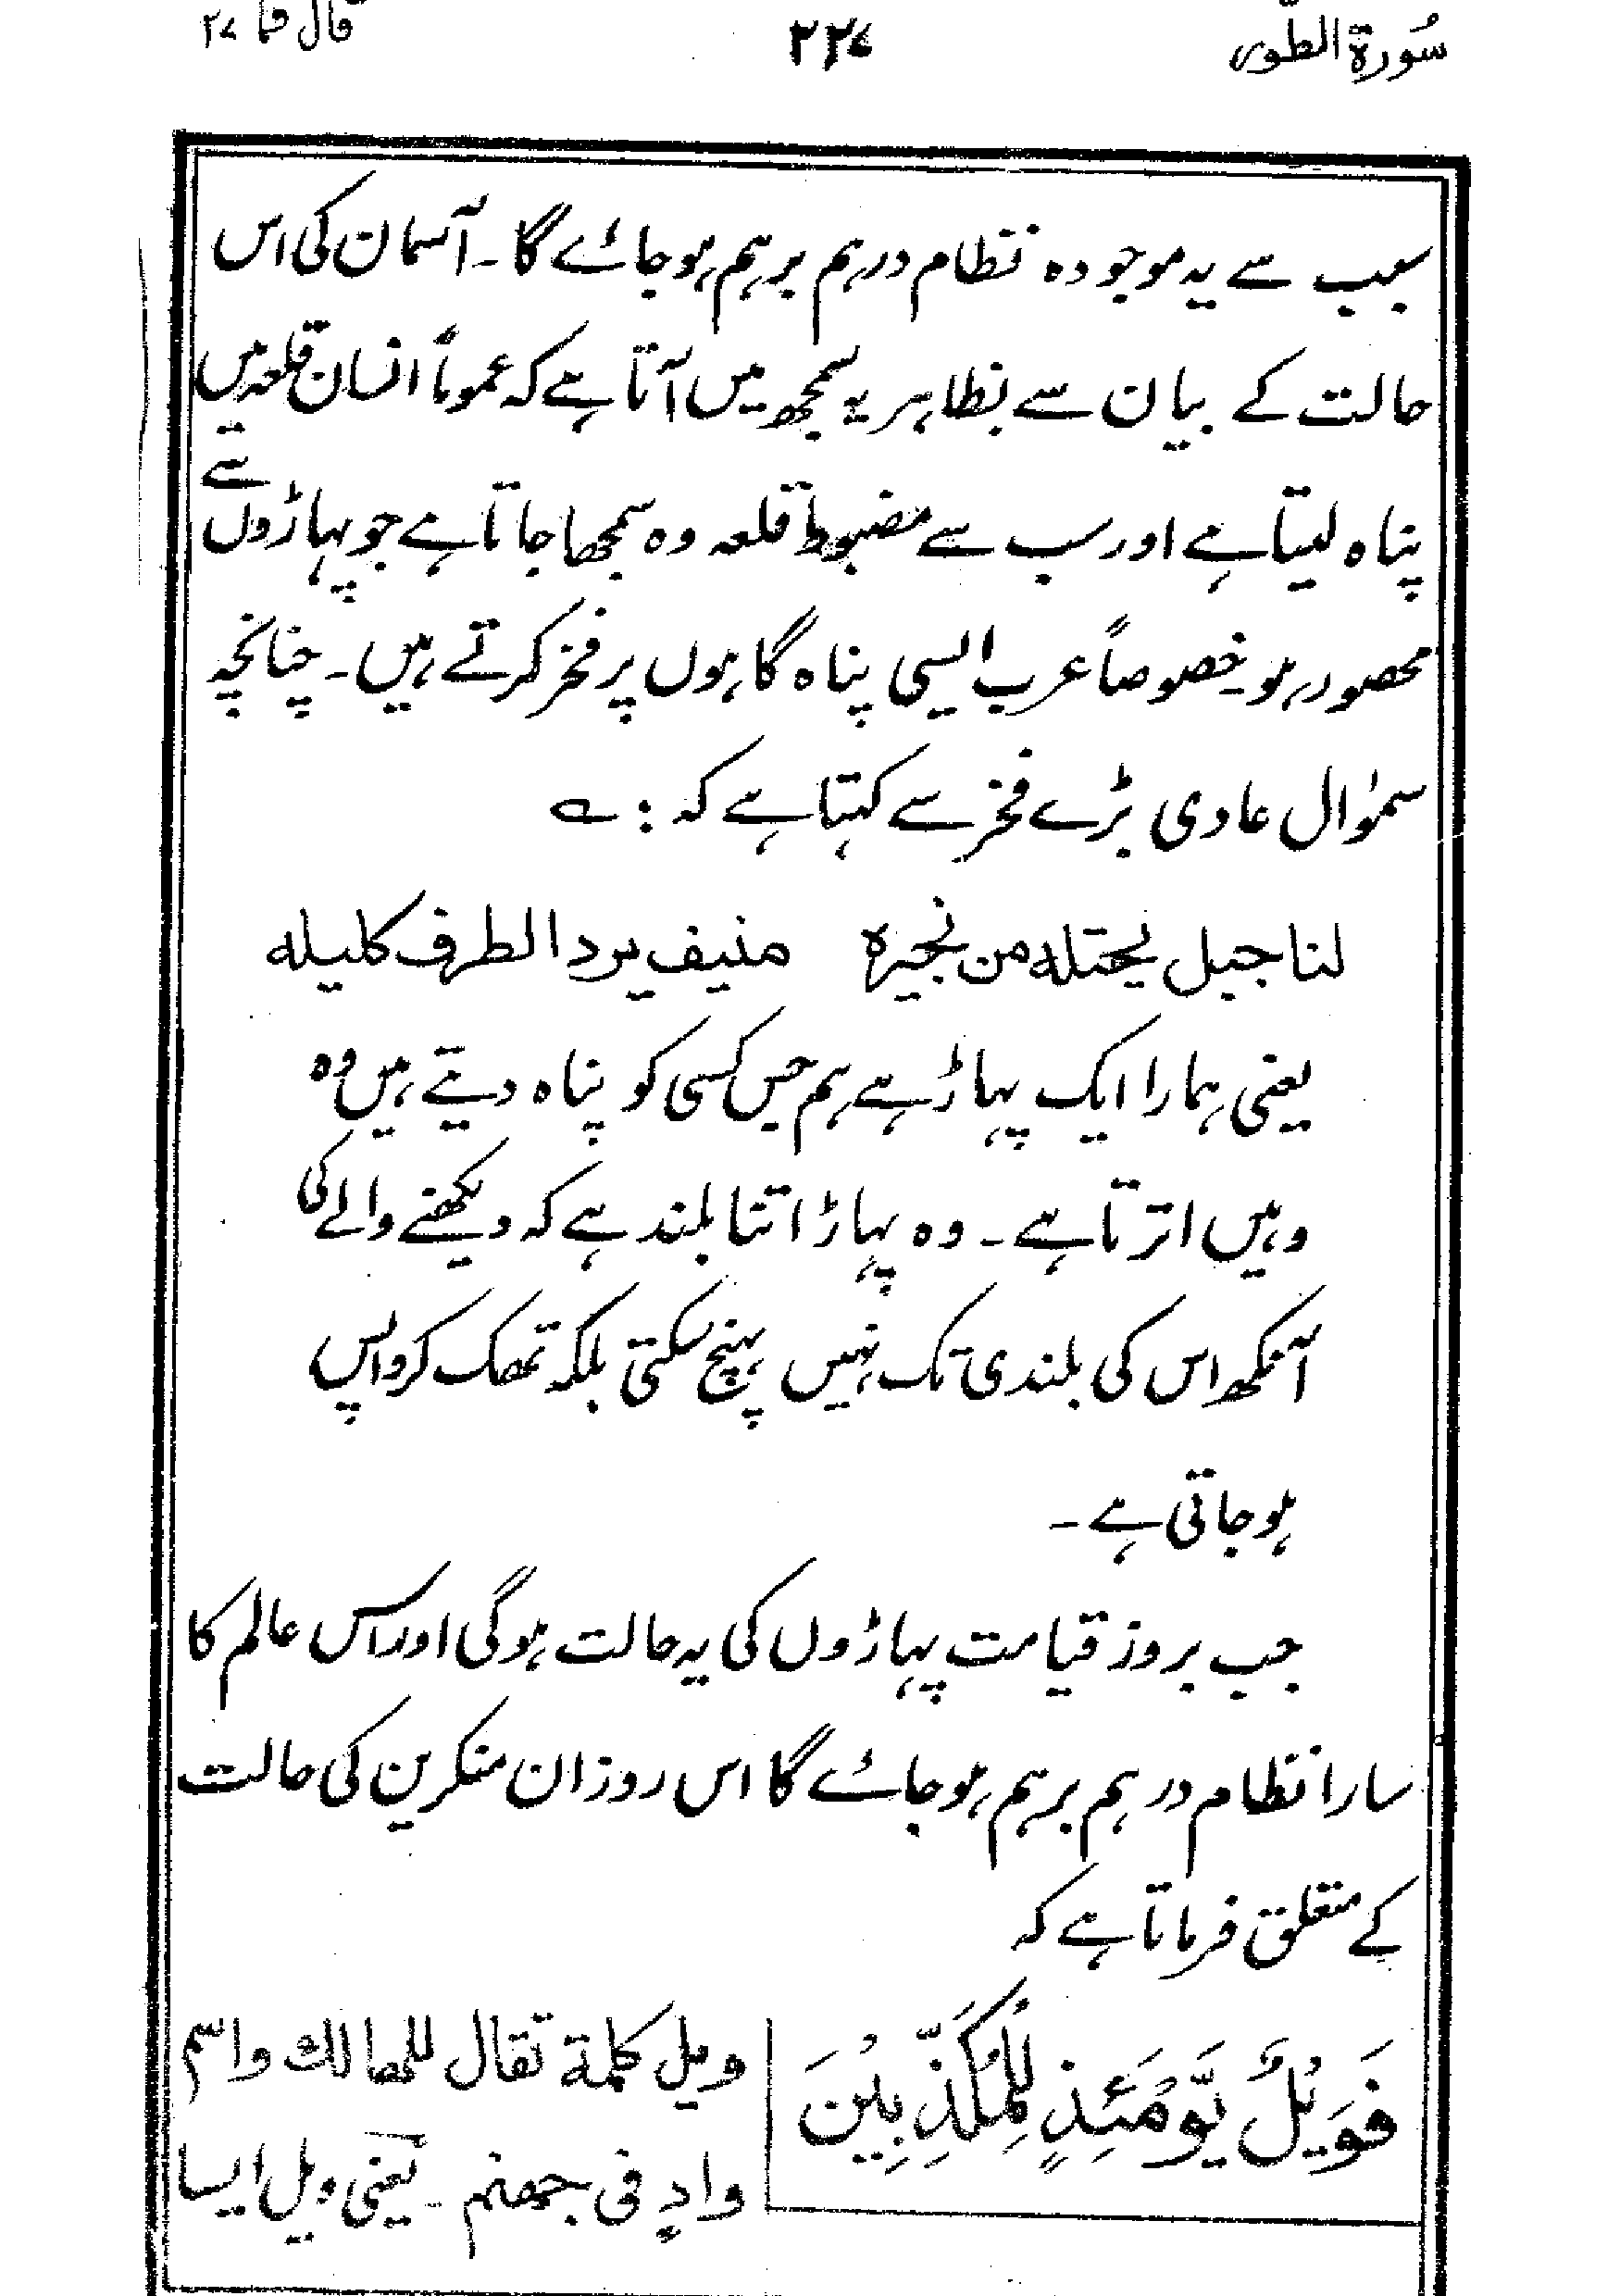 سُورة الطّور ۲۲۷ قال فما ۲۷
سبب سے یہ موجودہ نظام درہم برہم ہو جائے گا۔ آسمان کی اس
حالت کے بیان سے بظاہر یہ سمجھ میں آتا ہے کہ عموماً انسان قلعہ میں
پناہ لیتا ہے اور سب سے مضبوط قلعہ وہ سمجھا جاتا ہے جو پہاڑوں سے
محصور ہو۔ خصوصاً عرب ایسی پناہ گاہوں پر فخر کرتے ہیں۔ چنانچہ
سموٰال عادی بڑے فخر سے کہتا ہے کہ :ے
لنا جبل یحتله من نجیره منیف یرد الطرف کلیله
یعنی ہمارا ایک پہاڑ ہے ہم جس کسی کو پناہ دیتے ہیں وہ
وہیں اترتا ہے۔ وہ پہاڑ اتنا بلند ہے کہ دیکھنے والے کی
آنکھ اس کی بلندی تک نہیں پہنچ سکتی بلکہ تھک کر واپس
ہو جاتی ہے۔
جب بروز قیامت پہاڑوں کی یہ حالت ہو گی اور اس عالم کا
سارا نظام درہم برہم ہو جائے گا اس روز ان منکرین کی حالت
کے متعلق فرماتا ہے کہ
فَوَيْلٌ يَّوْمَئِذٍ لِّلْمُكَذِّبِيْنَ
ویل کلمة تقال للهالك واسم
وادٍ فی جهنم۔ یعنی ویل ایسا